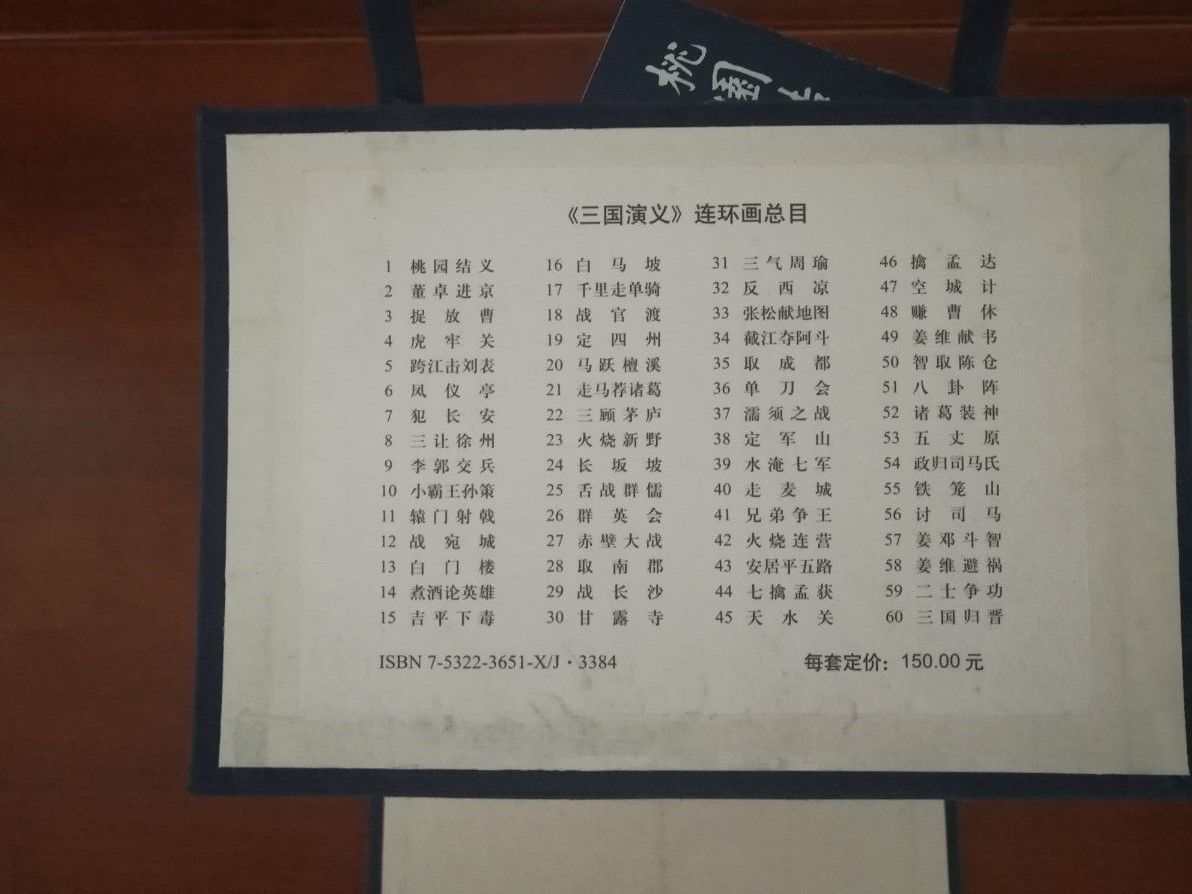 桃園
《三国演义》连环画总目
1 桃园结义
2 董卓进京
3 捉放曹
4 虎牢关
5 跨江击刘表
6 凤仪亭
7 犯长安
8 三让徐州
9 李郭交兵
10 小霸王孙策
11 辕门射戟
12 战宛城
13 白门楼
14 煮酒论英雄
15 吉平下毒
16 白马坡
17 千里走单骑
18 战官渡
19 定四州
20 马跃檀溪
21 走马荐诸葛
22 三顾茅庐
23 火烧新野
24 长坂坡
25 舌战群儒
26 群英会
27 赤壁大战
28 取南郡
29 战长沙
30 甘露寺
31 三气周瑜
32 反西凉
33 张松献地图
34 截江夺阿斗
35 取成都
36 单刀会
37 濡须之战
38 定军山
39 水淹七军
40 走麦城
41 兄弟争王
42 火烧连营
43 安居平五路
44 七擒孟获
45 天水关
46 擒孟达
47 空城计
48 赚曹休
49 姜维献书
50 智取陈仓
51 八卦阵
52 诸葛装神
53 五丈原
54 政归司马氏
55 铁笼山
56 讨司马
57 姜邓斗智
58 姜维避祸
59 二士争功
60 三国归晋
ISBN 7-5322-3651-X/J·3384
每套定价：150.00 元